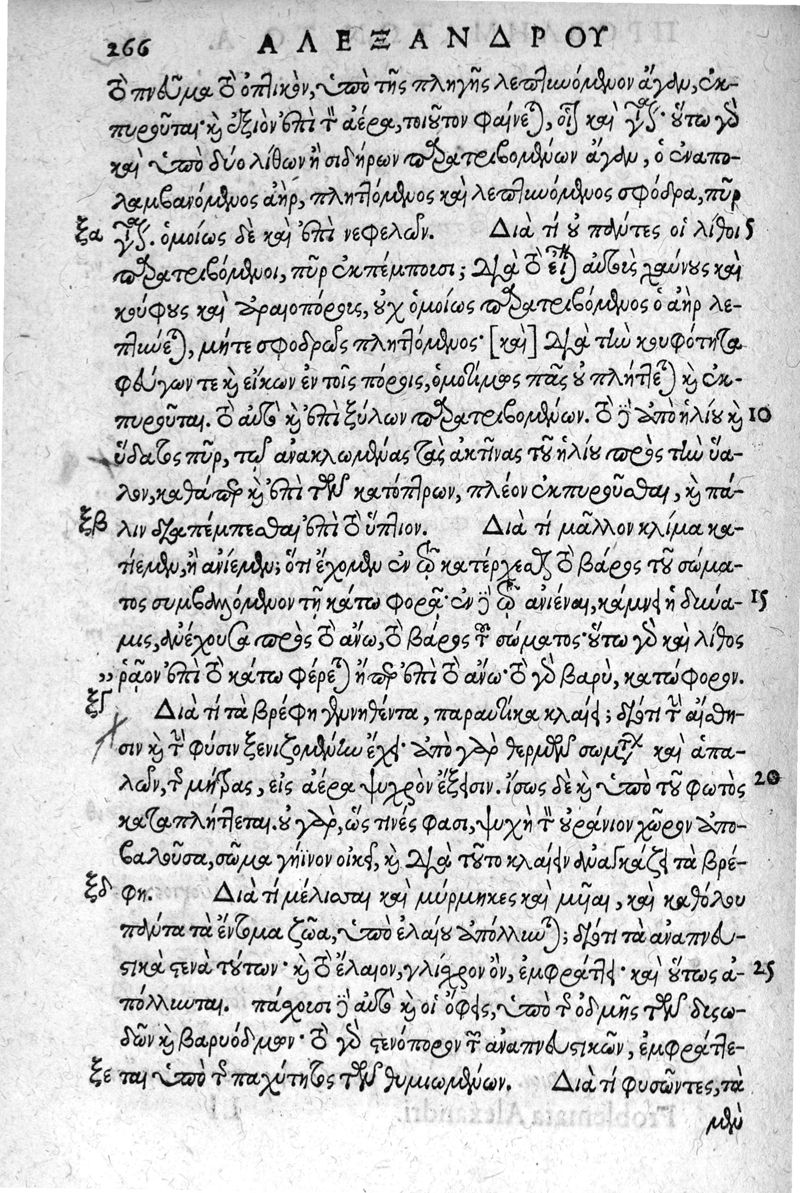 266 ΑΛΕΞΑΝΔΡΟΥ
τὸ πνεῦμα τὸ ὀπτικὸν, ὑπὸ τῆς πληγῆς λεπτυνόμενον ἄγαν, ἐκ-
πυροῦται· καὶ ἐξιὸν ἐπὶ τὸν ἀέρα, τοιοῦτον φαίνεται, οἷον καὶ γίνεται· οὕτω γὰρ
καὶ ὑπὸ δύο λίθων ἢ σιδήρων παρατριβομένων ἄγαν, ὁ ἐναπο-
λαμβανόμενος ἀὴρ, πληττόμενος καὶ λεπτυνόμενος σφόδρα, πῦρ
ξα γίνεται. ὁμοίως δὲ καὶ ἐπὶ νεφελῶν. Διὰ τί οὐ πάντες οἱ λίθοι 5
παρατριβόμενοι, πῦρ ἐκπέμπουσι; διὰ τὸ εἶναι αὐτοὺς χαύνους καὶ
κούφους καὶ ἀραιοπόρους, οὐχ ὁμοίως παρατριβόμενος ὁ ἀὴρ λε-
πτύνεται, μήτε σφοδρῶς πληττόμενος· [καὶ] διὰ τὴν κουφότητα
φεύγων τε καὶ εἴκων ἐν τοῖς πόροις, ὁμοτίμως πᾶς οὐ πλήττεται καὶ ἐκ-
πυροῦται. τὸ αὐτὸ καὶ ἐπὶ ξύλων παρατριβομένων. τὸ δὲ ἀπὸ ἡλίου καὶ 10
ὕδατος πῦρ, τῷ ἀνακλωμένας τὰς ἀκτῖνας τοῦ ἡλίου πρὸς τὴν ὕα-
λον, καθάπερ καὶ ἐπὶ τῶν κατόπτρων, πλέον ἐκπυροῦσθαι, καὶ πά-
ξβ λιν διαπέμπεσθαι ἐπὶ τὸ ὕπτιον. Διὰ τί μᾶλλον κλίμα κα-
τίεμεν, ἢ ἀνίεμεν; ὅτι ἔχομεν ἐν τῷ κατέρχεσθαι τὸ βάρος τοῦ σώμα-
τος συμβαλλόμενον τῇ κάτω φορᾷ· ἐν δὲ τῷ ἀνιέναι, κάμνει ἡ δύνα- 15
μις, ἀνέχουσα πρὸς τὸ ἄνω, τὸ βάρος τοῦ σώματος· οὕτω γὰρ καὶ λίθος
„ ῥᾷον ἐπὶ τὸ κάτω φέρεται ἤπερ ἐπὶ τὸ ἄνω· τὸ γὰρ βαρὺ, κατώφορον.
ξγ Διὰ τί τὰ βρέφη γεννηθέντα, παραυτίκα κλαίει; διότι τὴν αἴσθη-
σιν καὶ τὴν φύσιν ξενιζομένην ἔχει· ἀπὸ γὰρ θερμῶν σωμάτων καὶ ἁπα-
λῶν, τῆς μήτρας, εἰς ἀέρα ψυχρὸν ἔξεισιν. ἴσως δὲ καὶ ὑπὸ τοῦ φωτὸς 20
καταπλήττεται. οὐ γὰρ, ὥς τινές φασι, ψυχὴ τὸν οὐράνιον χῶρον ἀπο-
βαλοῦσα, σῶμα γήϊνον οἰκεῖ, καὶ διὰ τοῦτο κλαίειν ἀναγκάζει τὰ βρέ-
ξδ φη. Διὰ τί μέλισσαι καὶ μύρμηκες καὶ μυῖαι, καὶ καθόλου
πάντα τὰ ἔντομα ζῶα, ὑπὸ ἐλαίου ἀπόλλυνται; διότι τὰ ἀναπνευ-
στικὰ στενὰ τούτων· καὶ τὸ ἔλαιον, γλίσχρον ὂν, ἐμφράττει· καὶ οὕτως ἀ- 25
πόλλυνται. πάσχουσι δὲ αὐτὸ καὶ οἱ ὄφεις, ὑπὸ τῆς ὀδμῆς τῶν δυσω-
δῶν καὶ βαρυόδμων· τὸ γὰρ στενόπορον τῶν ἀναπνευστικῶν, ἐμφράττε-
ξε ται ὑπὸ τῆς παχύτητος τῶν θυμιωμένων. Διὰ τί φυσῶντες, τὰ
μὲν